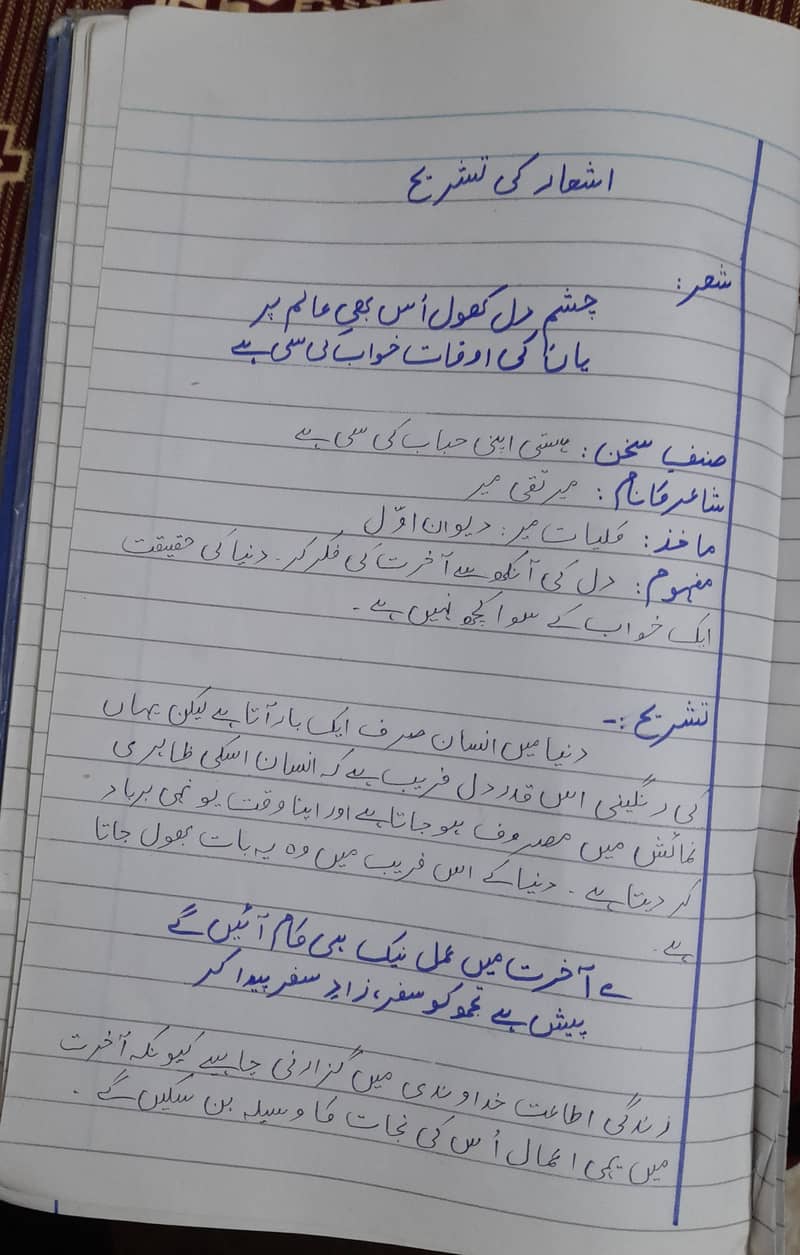 اشعار کی تشریح
شعر:
چشمِ دل کھول اُس بھی عالم پر
یاں کی اوقات خواب کی سی ہے
صنفِ سخن: ہستی اپنی حباب کی سی ہے
شاعر کا نام: میر تقی میر
ماخذ: کلیات میر: دیوان اوّل
مفہوم: دل کی آنکھ سے آخرت کی فکر کر۔ دنیا کی حقیقت
ایک خواب کے سوا کچھ نہیں ہے۔
تشریح:-
دنیا میں انسان صرف ایک بار آتا ہے لیکن یہاں
کی رنگینی اس قدر دل فریب ہے کہ انسان اسکی ظاہری
نمائش میں مصروف ہو جاتا ہے اور اپنا وقت یو نہی برباد
کر دیتا ہے۔ دنیا کے اس فریب میں وہ یہ بات بھول جاتا
ہے۔
؎ آخرت میں عمل نیک ہی کام آئیں گے
پیش ہے تجھ کو سفر، زادِ سفر پیدا کر
زندگی اطاعت خداوندی میں گزارنی چاہیے کیونکہ آخرت
میں یہی اعمال اُس کی نجات کا وسیلہ بن سکیں گے۔